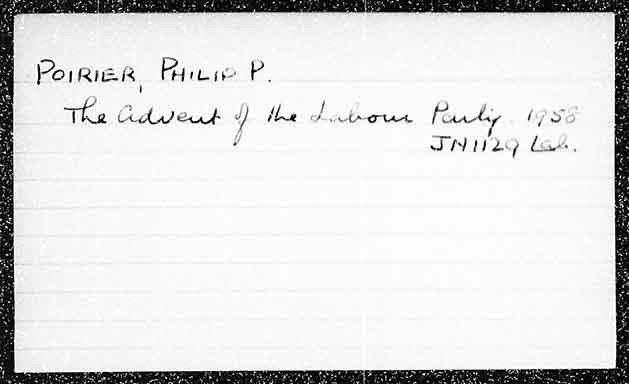 POIRIER, PHILIP P.
The Advent of the Labour Party. 1958
JN1129 Lab.